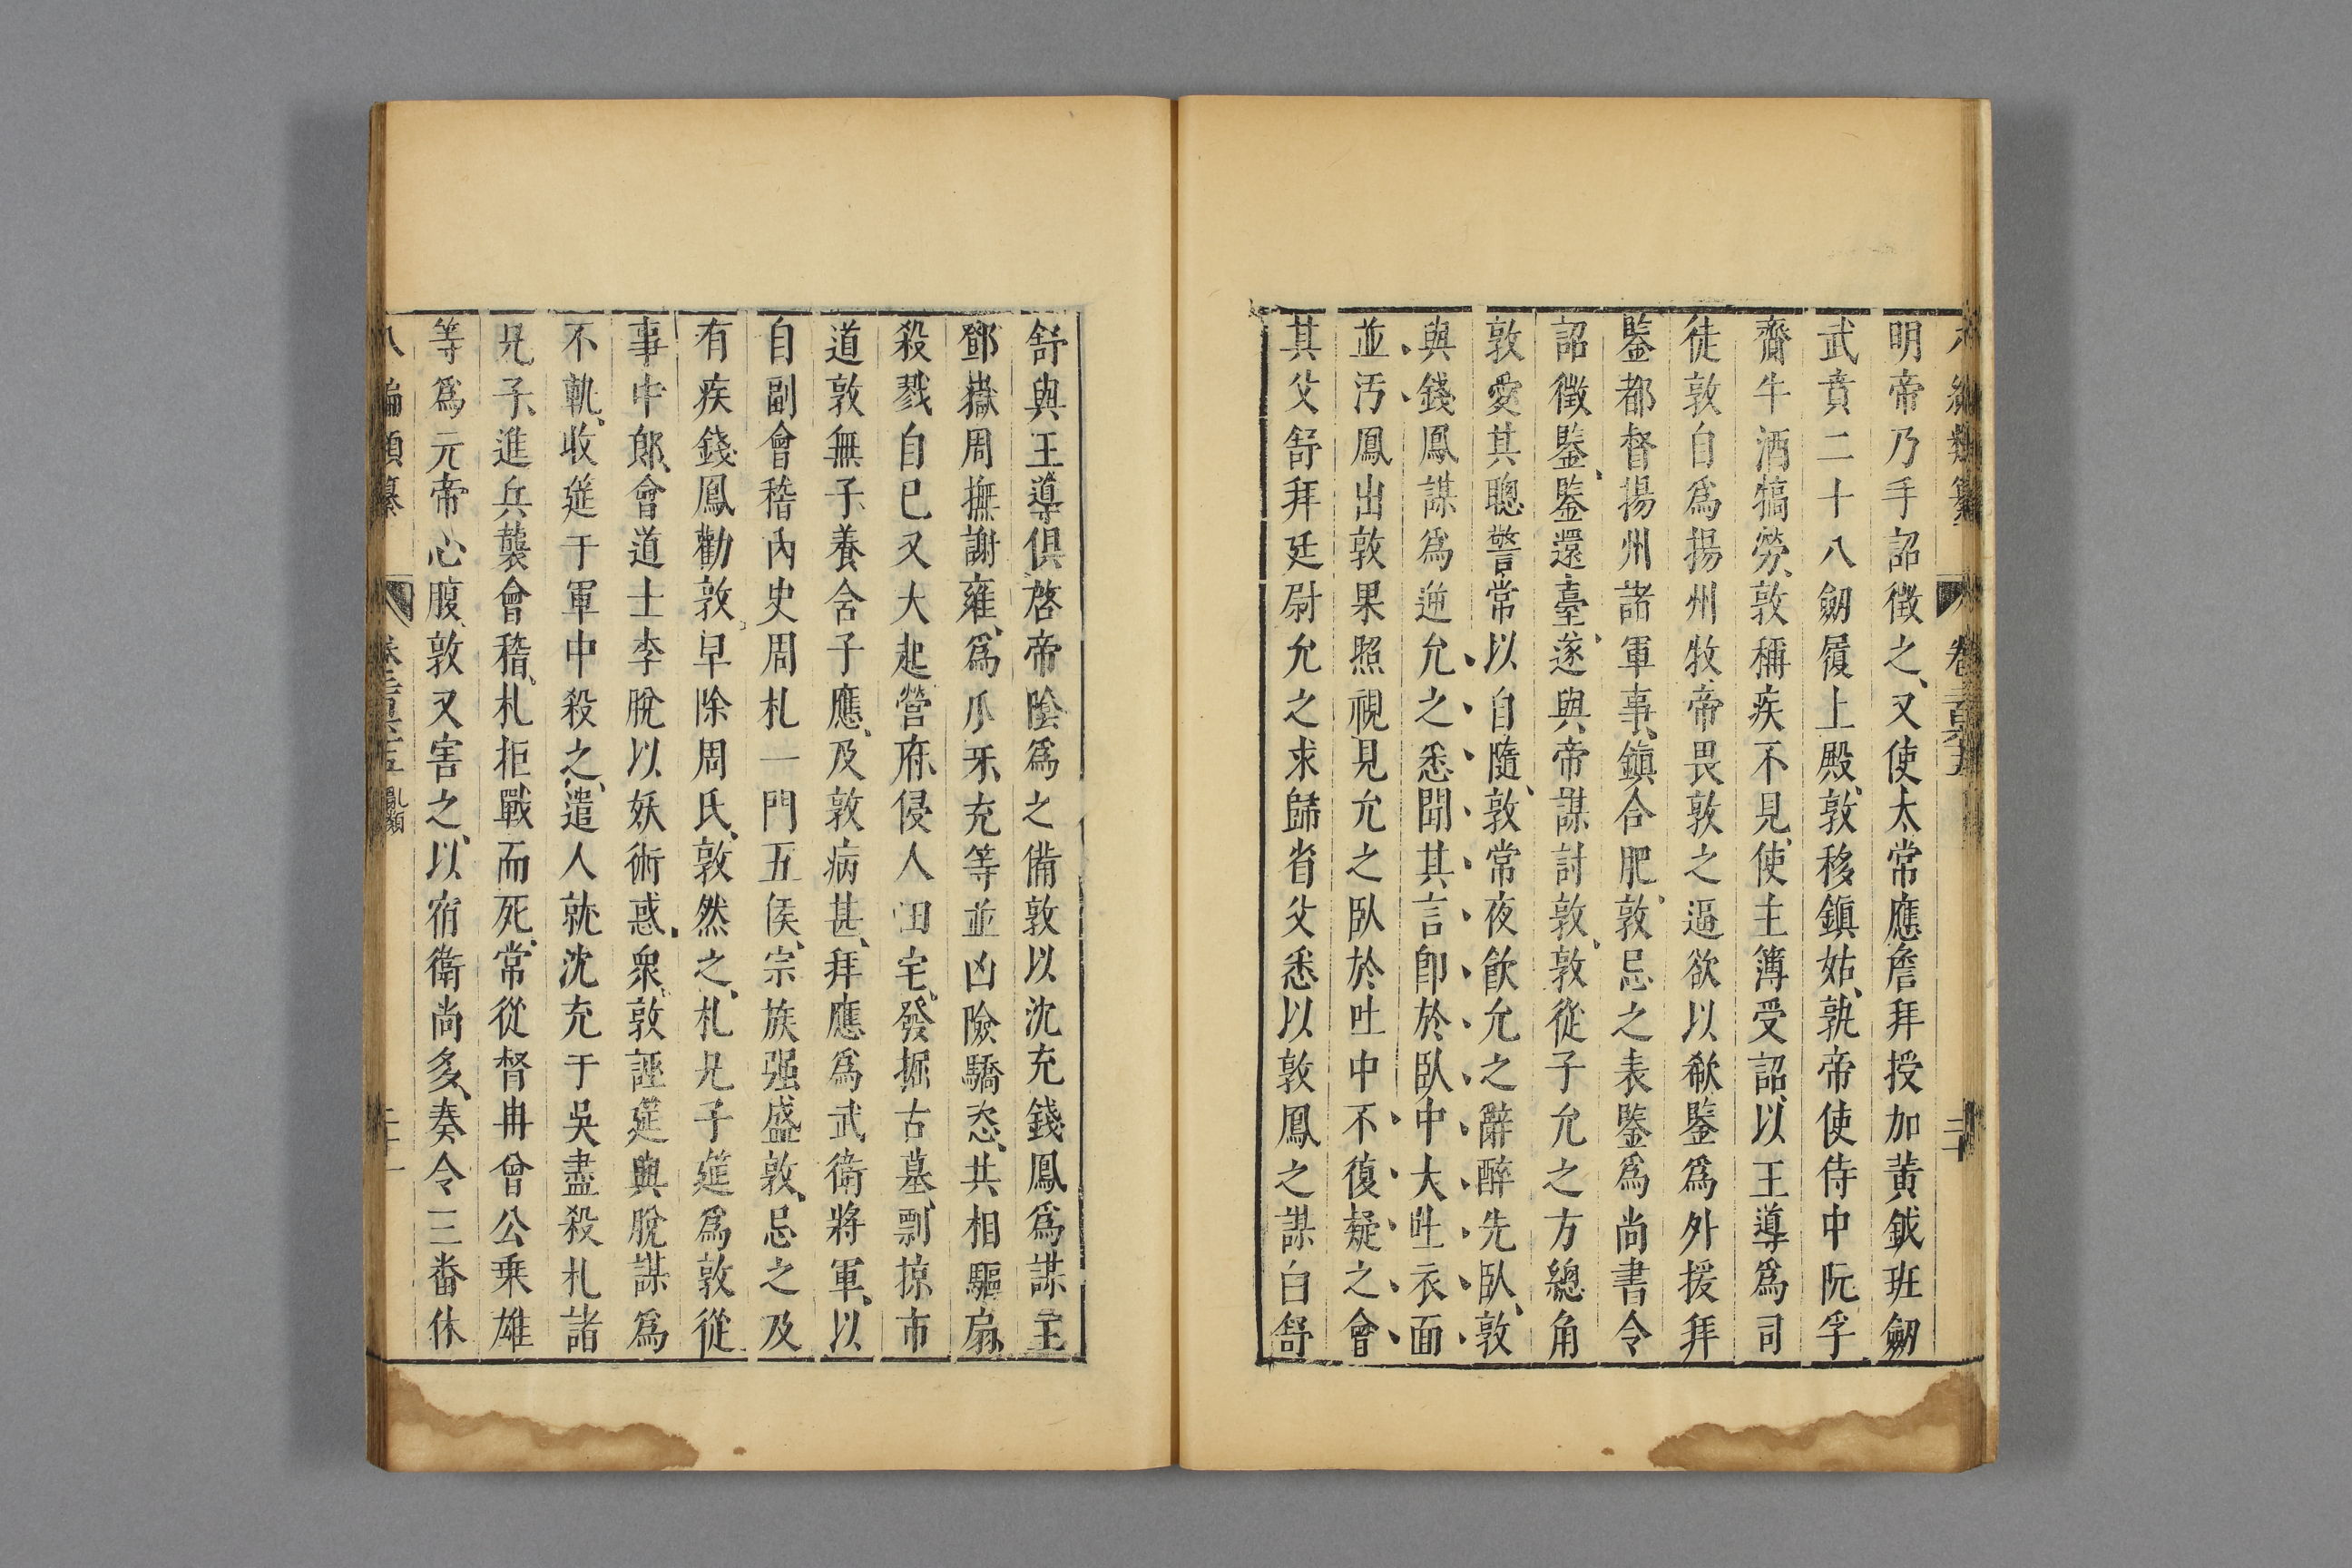 明帝乃手詔徵之又使太常應詹拜授加黃鉞班劒
武賁二十八劒履上殿敦移鎮姑孰帝使侍中阮孚
齎牛酒犒勞敦稱疾不見使主簿受詔以王導爲司
徒敦自爲揚州牧帝畏敦之逼欲以郗鑒爲外援拜
鑒都督揚州諸軍事鎮合肥敦忌之表鑒爲尚書令
詔徵鑒鑒還臺遂與帝謀討敦敦從子允之方總角
敦愛其聰警常以自隨敦常夜飮允之辭醉先臥敦
與錢鳳謀爲逆允之悉聞其言卽於臥中大吐衣面
並汚鳳出敦果照視見允之臥於吐中不復疑之會
其父舒拜廷尉允之求歸省父悉以敦鳳之謀白舒
舒與王導俱啓帝陰爲之備敦以沈充錢鳳爲謀主
鄧嶽周撫謝雍爲爪牙充等並凶險驕恣共相驅扇
殺戮自巳又大起營府侵人田宅發掘古墓剽掠市
道敦無子養含子應及敦病甚拜應爲武衛將軍以
自副會稽內史周札一門五侯宗族强盛敦忌之及
有疾錢鳳勸敦早除周氏敦然之札兄子莚爲敦從
事中郎會道士李脫以妖術惑衆敦誣莚與脫謀爲
不軌收莚于軍中殺之遣人就沈充于吳盡殺札諸
兄子進兵襲會稽札拒戰而死常從督冉曾公乘雄
等爲元帝心腹敦又害之以宿衛尚多奏令三番休
八編類纂 卷二百六十五 亂類 二十一